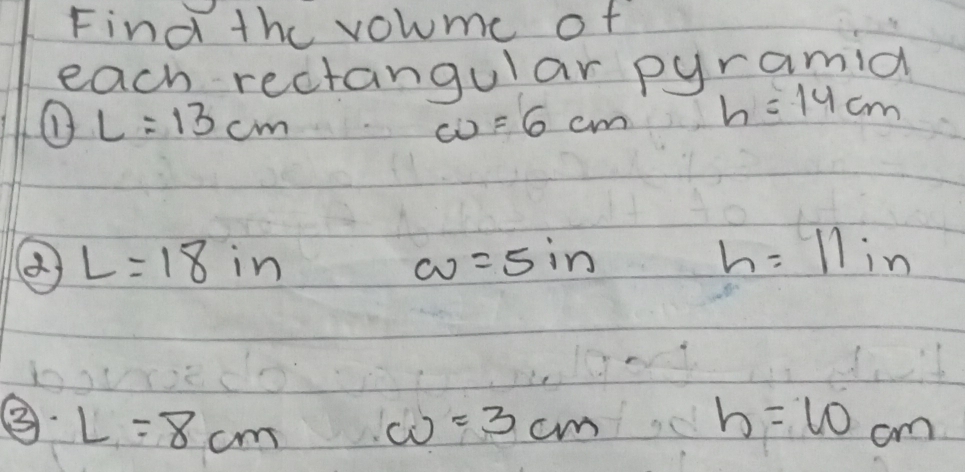 Find the volume of
each rectangular pyramid
① L = 13 cm w = 6 cm h = 14 cm
② L = 18 in w = 5 in h = 11 in
③ · L = 8 cm w = 3 cm h = 10 cm